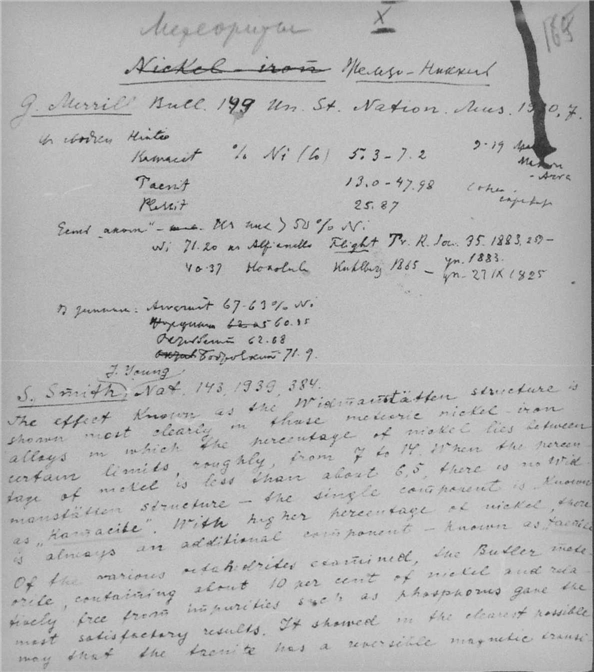 Метеориты
X
165
Nickel-iron Железо-Никкель
G. Merrill Bull. 149 Un. St. Nation. Mus. 1930, 7.
Kamacit % Ni (Co) 5.3-7.2
Taenit 13.0-47.98
Plessit 25.87
Есть > 50% Ni
Ni 71.20 Alfianello Flight Tr. R. Soc. 35. 1883,
1883.
40.37 Honolulu Kuhlberg 1865 — 27 IX 1825
Awaruit 67.63% Ni
60.45
62.68
Бобровский 71.9.
J. Young
S. Smith, Nat. 143, 1939, 384.
The effect known as the Widmanstätten structure is
shown most clearly in those meteoric nickel-iron
alloys in which the percentage of nickel lies between
certain limits, roughly, from 7 to 14. When the percen-
tage of nickel is less than about 6,5, there is no Wid-
manstätten structure — the single component is known
as "Kamacite". With higher percentage of nickel, there
is always an additional component — known as "taenite
Of the various octahedrites examined, the Butler mete-
orite, containing about 10 per cent of nickel and rela-
tively free from impurities such as phosphorus gave the
most satisfactory results. It showed in the clearest possible
way that the taenite has a reversible magnetic transi-